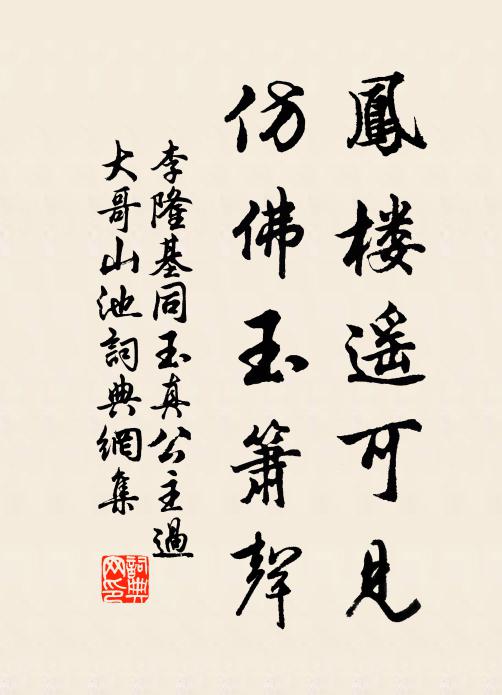 鳳楼遥可見
仿佛玉簫聲
李隆基同玉真公主過
大哥山池詞典網集
詞典
网印